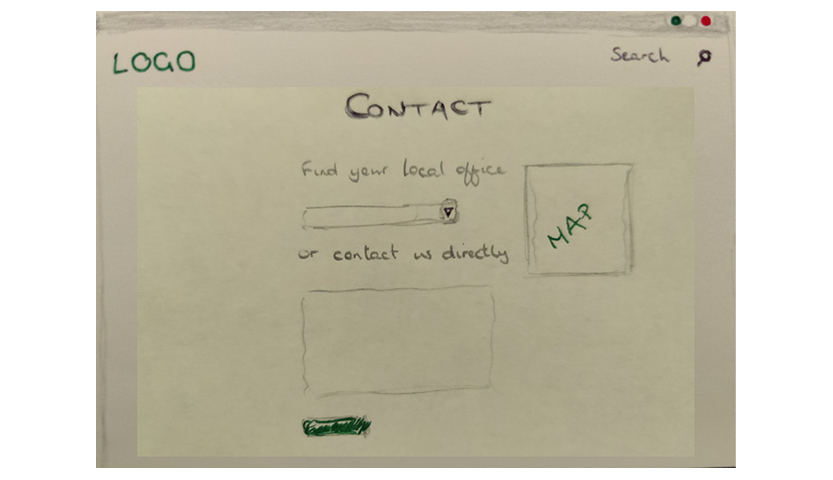 LOGO
Search
CONTACT
Find your local office
MAP
or contact us directly